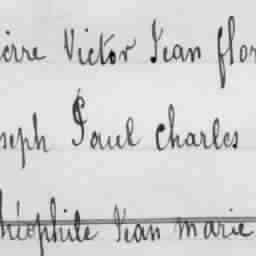 ierre Victor Jean flor
seph Paul Charles
héophile Jean marie